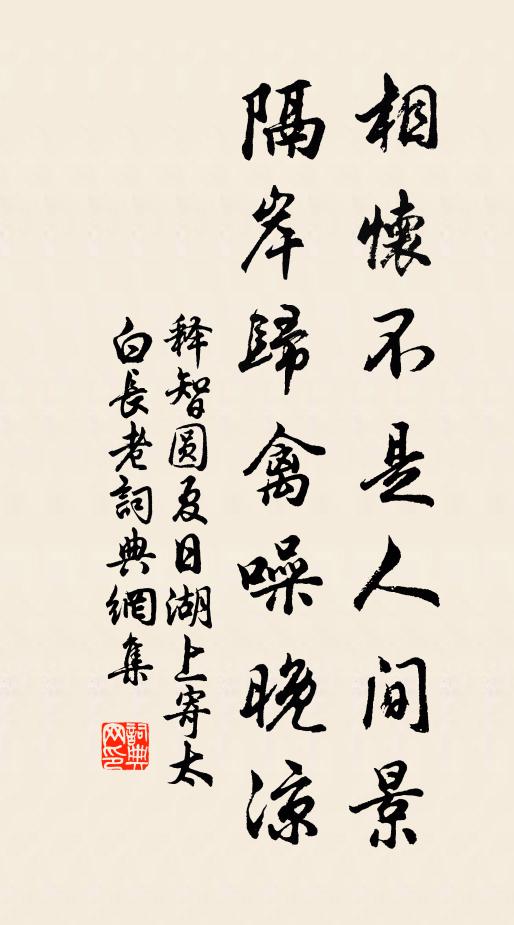 相懷不是人间景
隔岸歸禽噪晚涼
释智圆夏日湖上寄太
白長老詞典網集
詞典网印